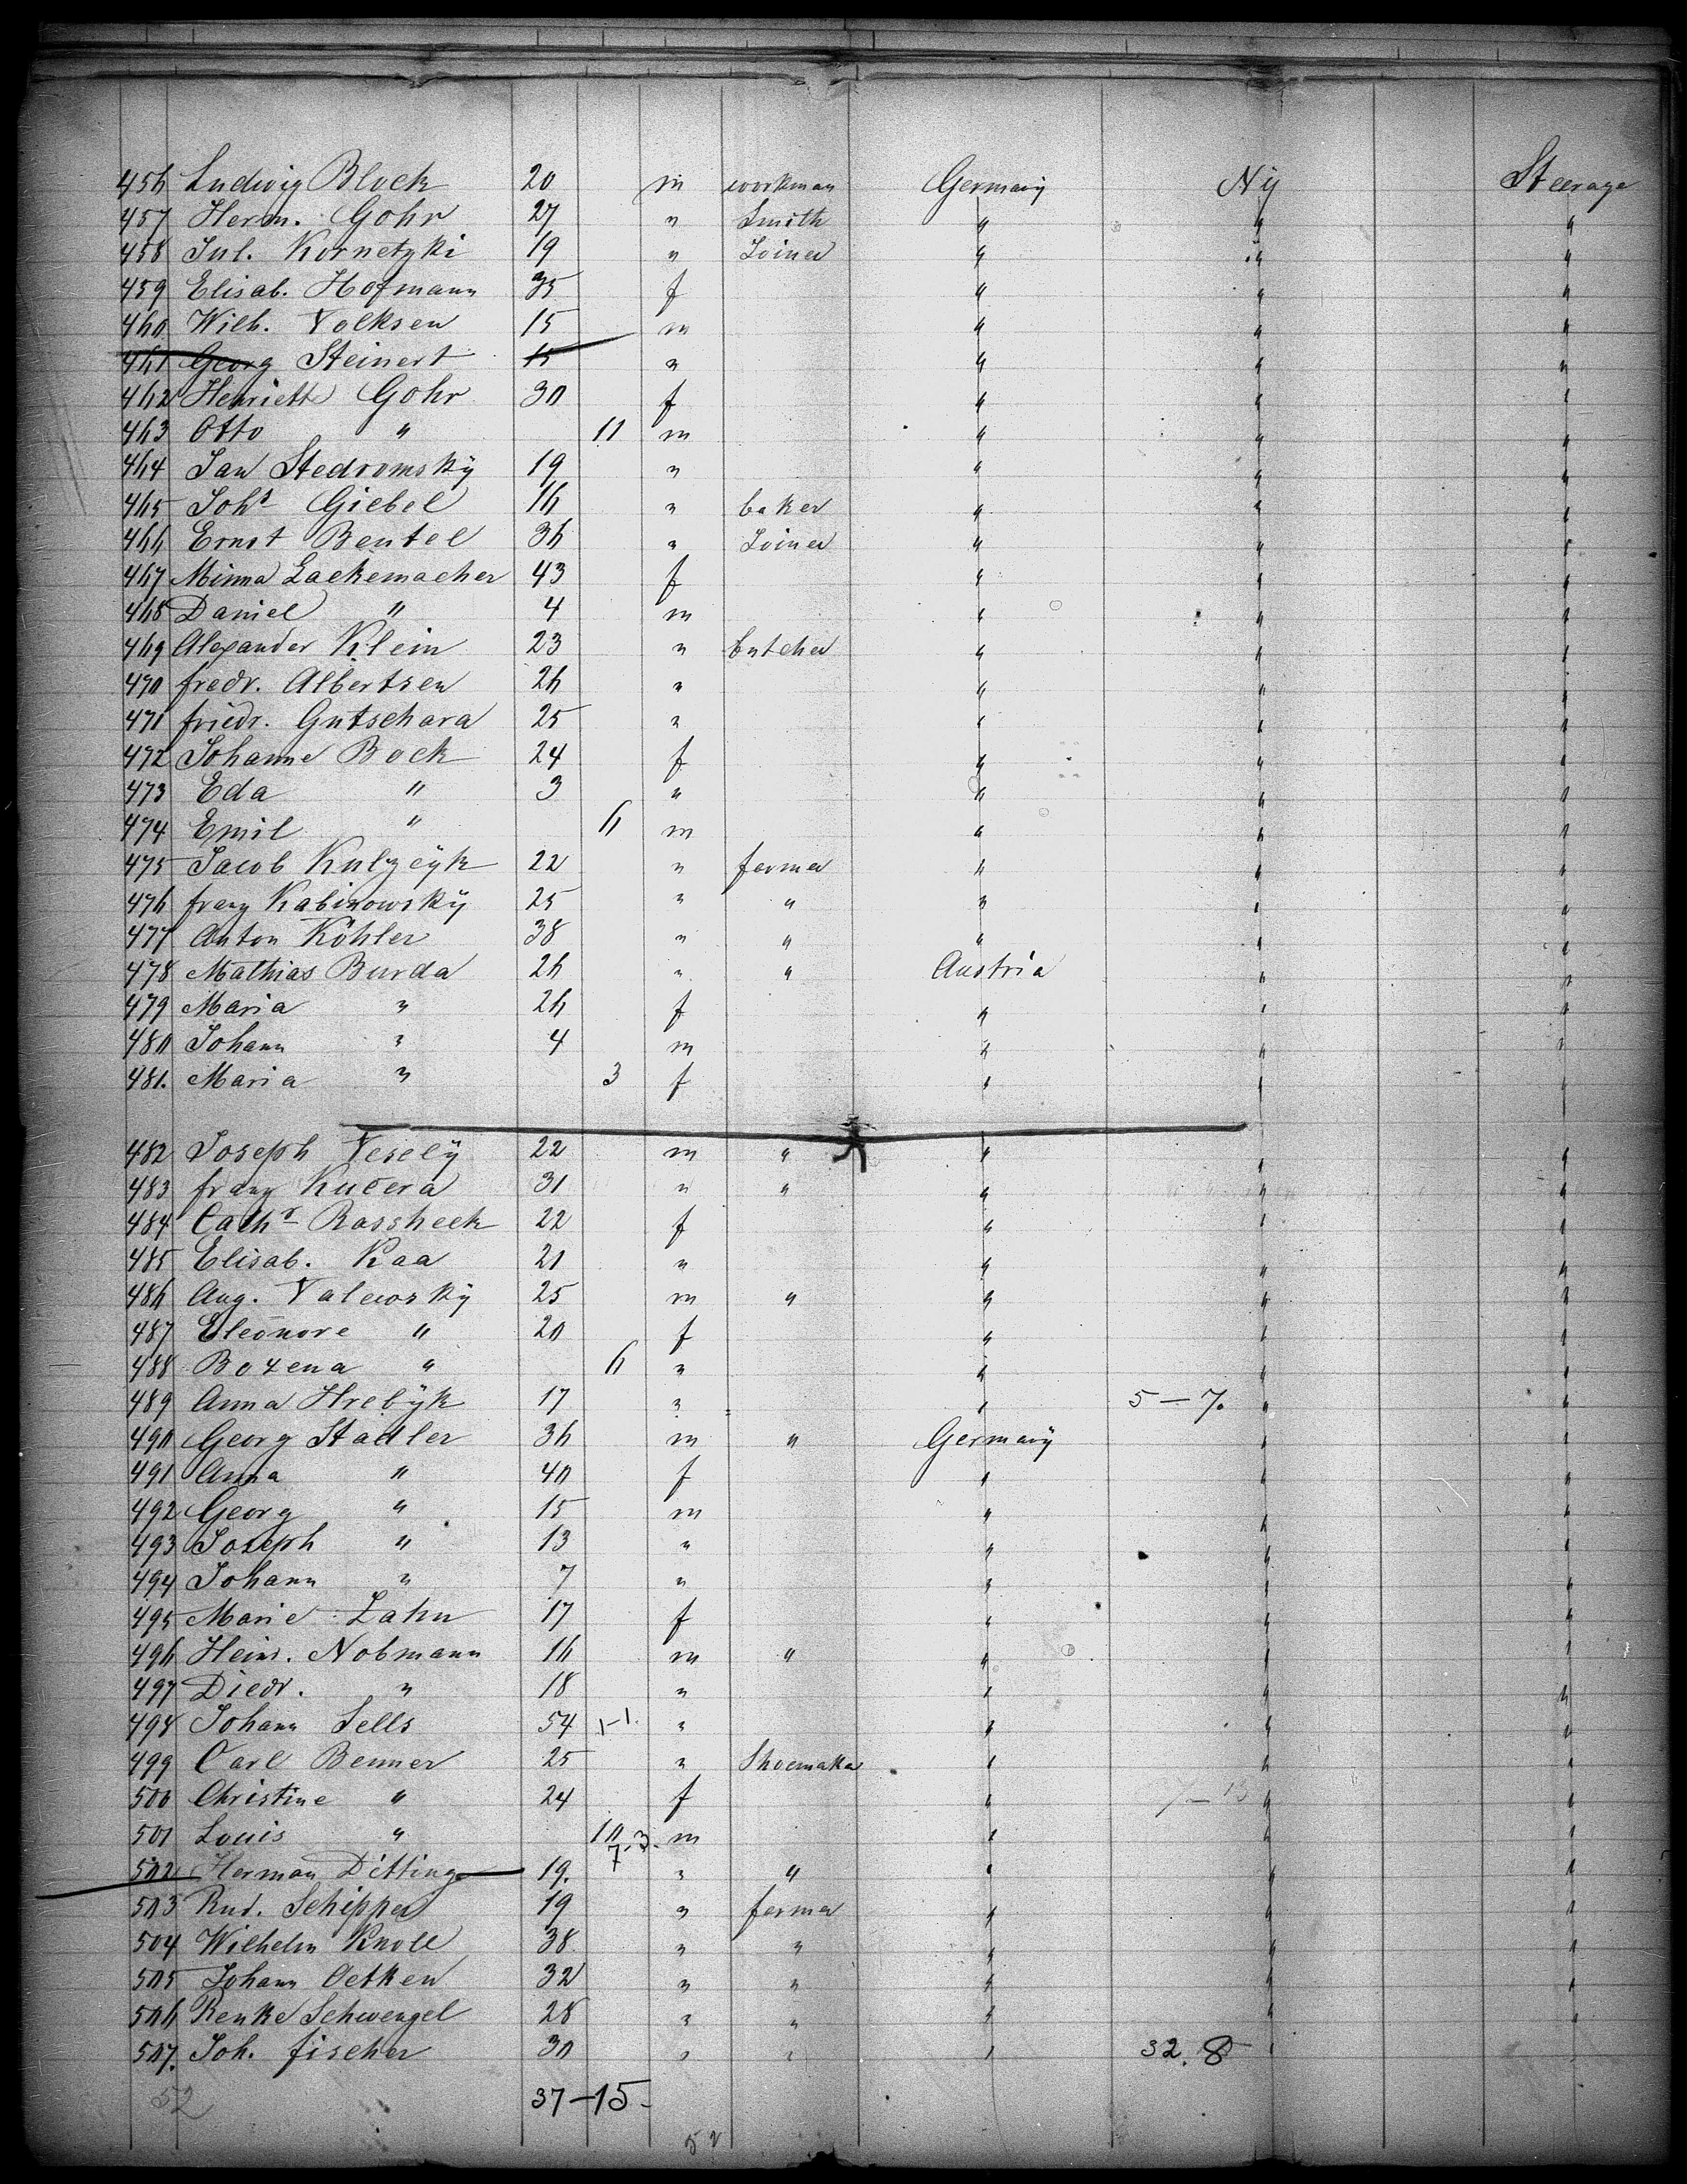 456 Ludwig Block 20 m workman Germany Ny Steerage
457 Herm. Gohr 27 " Smith " " "
458 Jul. Kornetzki 19 " Joiner " " "
459 Elisab. Hofmann 35 f " " "
460 Wilh. Volksen 15 m " " "
461 Georg Steinert 15 " " " "
462 Henriette Gohr 30 f " " "
463 Otto " 11 m " " "
464 Jan Stedromsky 19 " " " "
465 Johs Giebel 16 " baker " " "
466 Ernst Beutel 36 " Joiner " " "
467 Minna Lackemacher 43 f " " "
468 Daniel " 4 m " " "
469 Alexander Klein 23 " butcher " " "
470 fredr. Albertsen 26 " " " "
471 friedr. Gutschara 25 " " " "
472 Johanne Bock 24 f " " "
473 Eda " 3 " " " "
474 Emil " 6 m " " "
475 Jacob Kulzcyk 22 " farmer " " "
476 franz Kabinowsky 25 " " " " "
477 Anton Köhler 38 " " " " "
478 Mathias Burda 26 " " Austria " "
479 Maria " 26 f " " "
480 Johann " 4 m " " "
481. Maria " 3 f " " "
482 Joseph Vesely 22 m " " " "
483 franz Kucera 31 " " " " "
484 Cathr Rassheck 22 f " " "
485 Elisab. Kaa 21 " " " "
486 Aug. Valewsky 25 m " " " "
487 Eleonore " 20 f " " "
488 Bozena " 6 " " " "
489 Anna Hrebyk 17 " " 5–7. " "
490 Georg Stadler 36 m " Germany " "
491 Anna " 40 f " " "
492 Georg " 15 m " " "
493 Joseph " 13 " " " "
494 Johann " 7 " " " "
495 Marie Zahn 17 f " " "
496 Heinr. Nobmann 16 m " " " "
497 Diedr. " 18 " " " "
498 Johann Sells 54 1–1. " " " "
499 Carl Benner 25 " Shoemaker " " "
500 Christine " 24 f " 7–13 " "
501 Louis " 10 m " " "
7–3.
502 Herman Ditting 19. " " " " "
503 Rud. Schipper 19 " farmer " " "
504 Wilhelm Knoll 38 " " " " "
505 Johann Oetken 32 " " " " "
506 Renke Schwengel 28 " " " " "
507. Joh. fischer 30 " " " 32. 8 " "
52 37–15–
52